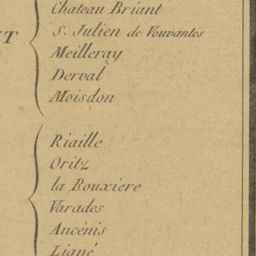 Chateau Briant
S. Julien de Vouvantes
Meilleray
Derval
Moisdon
Riaille
Oritz
la Rouxiere
Varades
Ancénis
Ligné